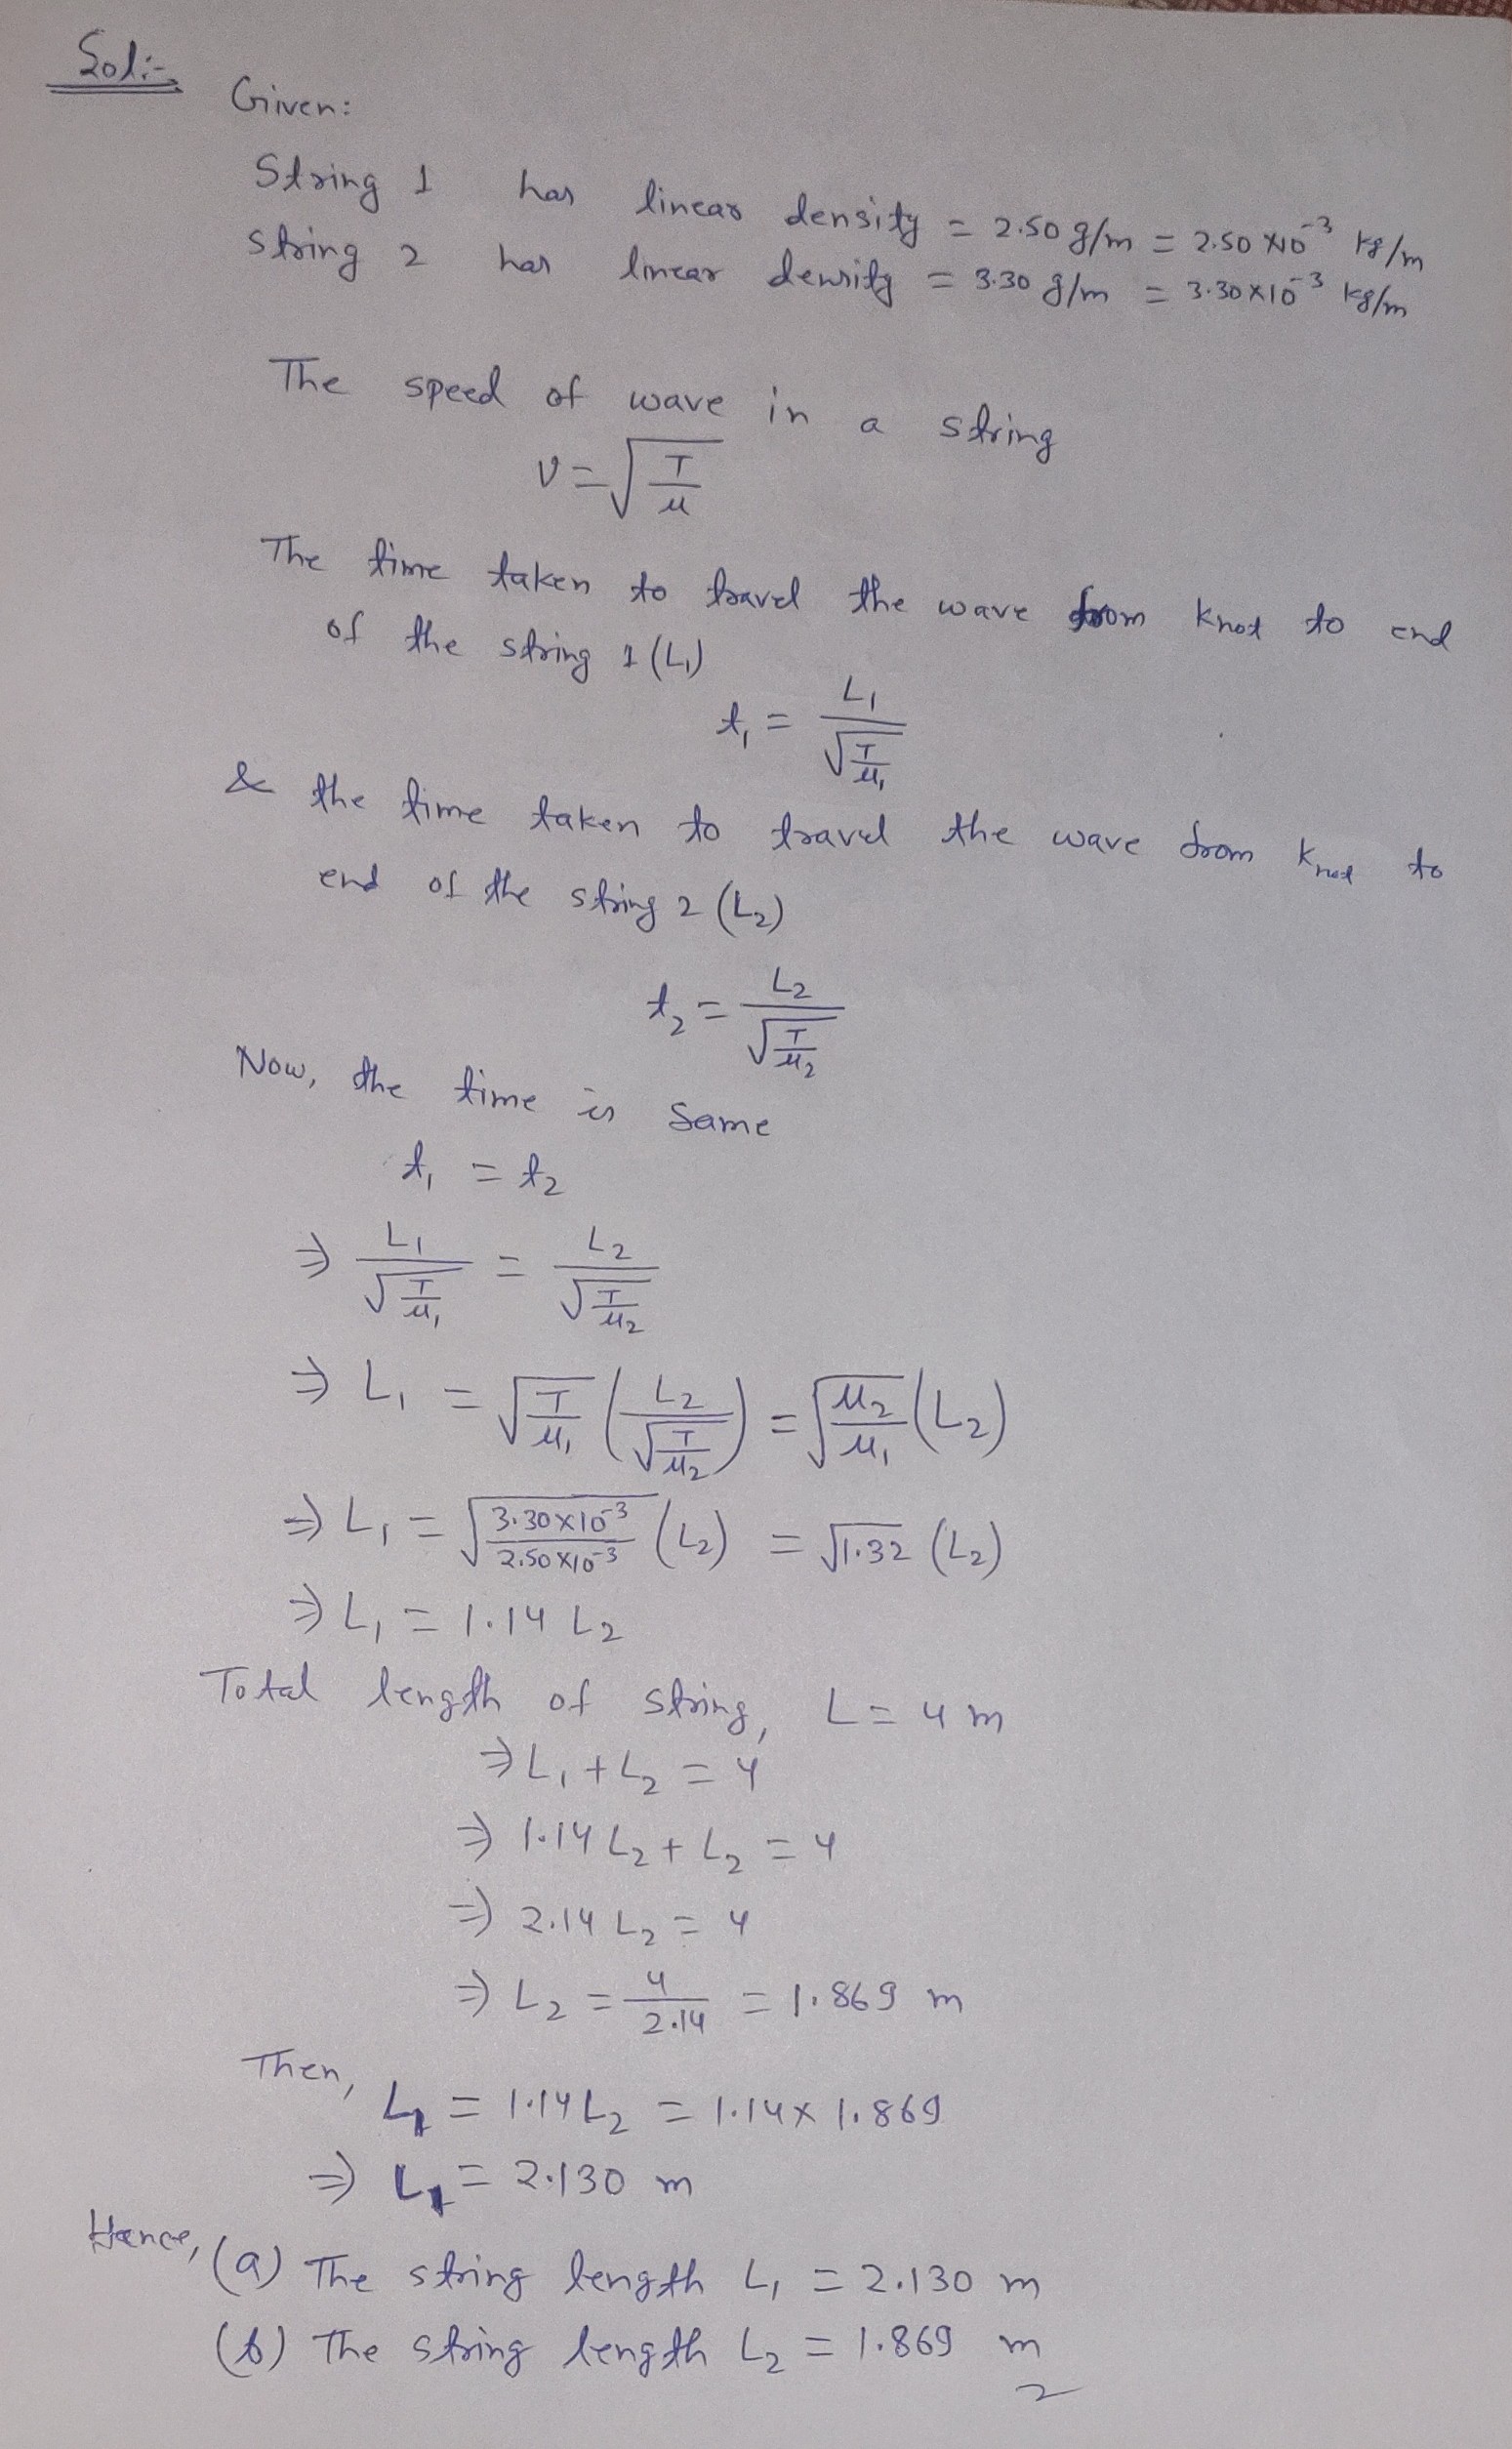 Sol:-
Given:
String 1 has linear density = 2.50 g/m = 2.50 × 10⁻³ kg/m
string 2 has linear density = 3.30 g/m = 3.30 × 10⁻³ kg/m
The speed of wave in a string
v = √(T/μ)
The time taken to travel the wave from knot to end
of the string 1 (L₁)
t₁ = L₁/√(T/μ₁)
& the time taken to travel the wave from knot to
end of the string 2 (L₂)
t₂ = L₂/√(T/μ₂)
Now, the time is same
t₁ = t₂
⇒ L₁/√(T/μ₁) = L₂/√(T/μ₂)
⇒ L₁ = √(T/μ₁) (L₂/√(T/μ₂)) = √(μ₂/μ₁) (L₂)
⇒ L₁ = √(3.30×10⁻³/2.50×10⁻³) (L₂) = √1.32 (L₂)
⇒ L₁ = 1.14 L₂
Total length of string, L = 4 m
⇒ L₁ + L₂ = 4
⇒ 1.14 L₂ + L₂ = 4
⇒ 2.14 L₂ = 4
⇒ L₂ = 4/2.14 = 1.869 m
Then,
L₁ = 1.14 L₂ = 1.14 × 1.869
⇒ L₁ = 2.130 m
Hence, (a) The string length L₁ = 2.130 m
(b) The string length L₂ = 1.869 m